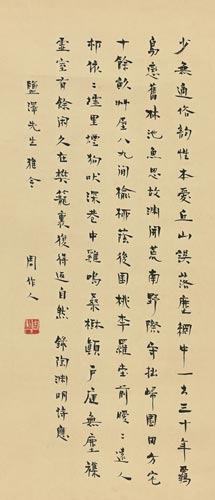 少無適俗韵性本愛丘山誤落塵網中一去三十年羈
鳥戀舊林池魚思故淵開荒南野際守拙歸園田方宅
十餘畝艸屋八九間榆柳蔭後園桃李羅堂前曖〻遠人
邨依〻墟里煙狗吠深巷中雞鳴桑樹顛戶庭無塵襍
虛室有餘閑久在樊籠裏復得返自然 錄陶淵明詩應
澤先生雅令
周作人